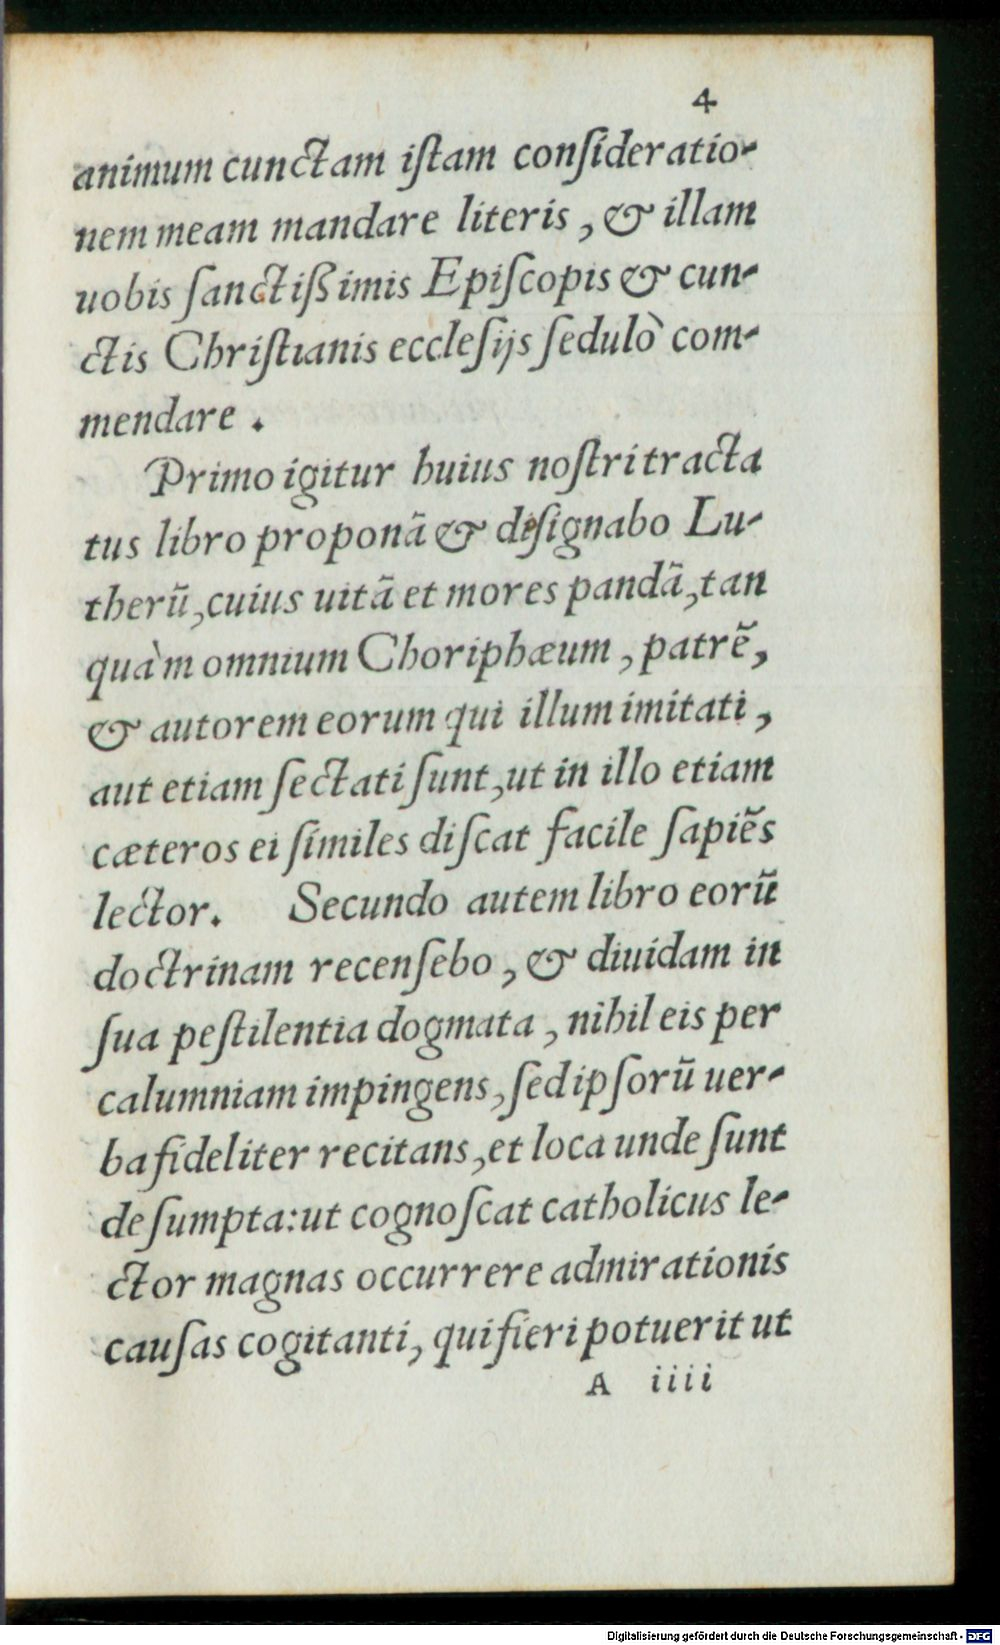 4
animum cunctam iſtam conſideratio-
nem meam mandare literis, & illam
uobis ſanctiſſimis Epiſcopis & cun-
ctis Chriſtianis eccleſijs ſedulò com-
mendare.
Primo igitur huius noſtri tracta
tus libro proponã & deſignabo Lu-
therũ, cuius uitã et mores pandã, tan
quàm omnium Choriphæum, patrẽ,
& autorem eorum qui illum imitati,
aut etiam ſectati ſunt, ut in illo etiam
cæteros ei ſimiles diſcat facile ſapiẽs
lector. Secundo autem libro eorũ
doctrinam recenſebo, & diuidam in
ſua peſtilentia dogmata, nihil eis per
calumniam impingens, ſed ipſorũ uer-
ba fideliter recitans, et loca unde ſunt
deſumpta: ut cognoſcat catholicus le-
ctor magnas occurrere admirationis
cauſas cogitanti, qui fieri potuerit ut
A iiii
Digitalisierung gefördert durch die Deutsche Forschungsgemeinschaft - DFG